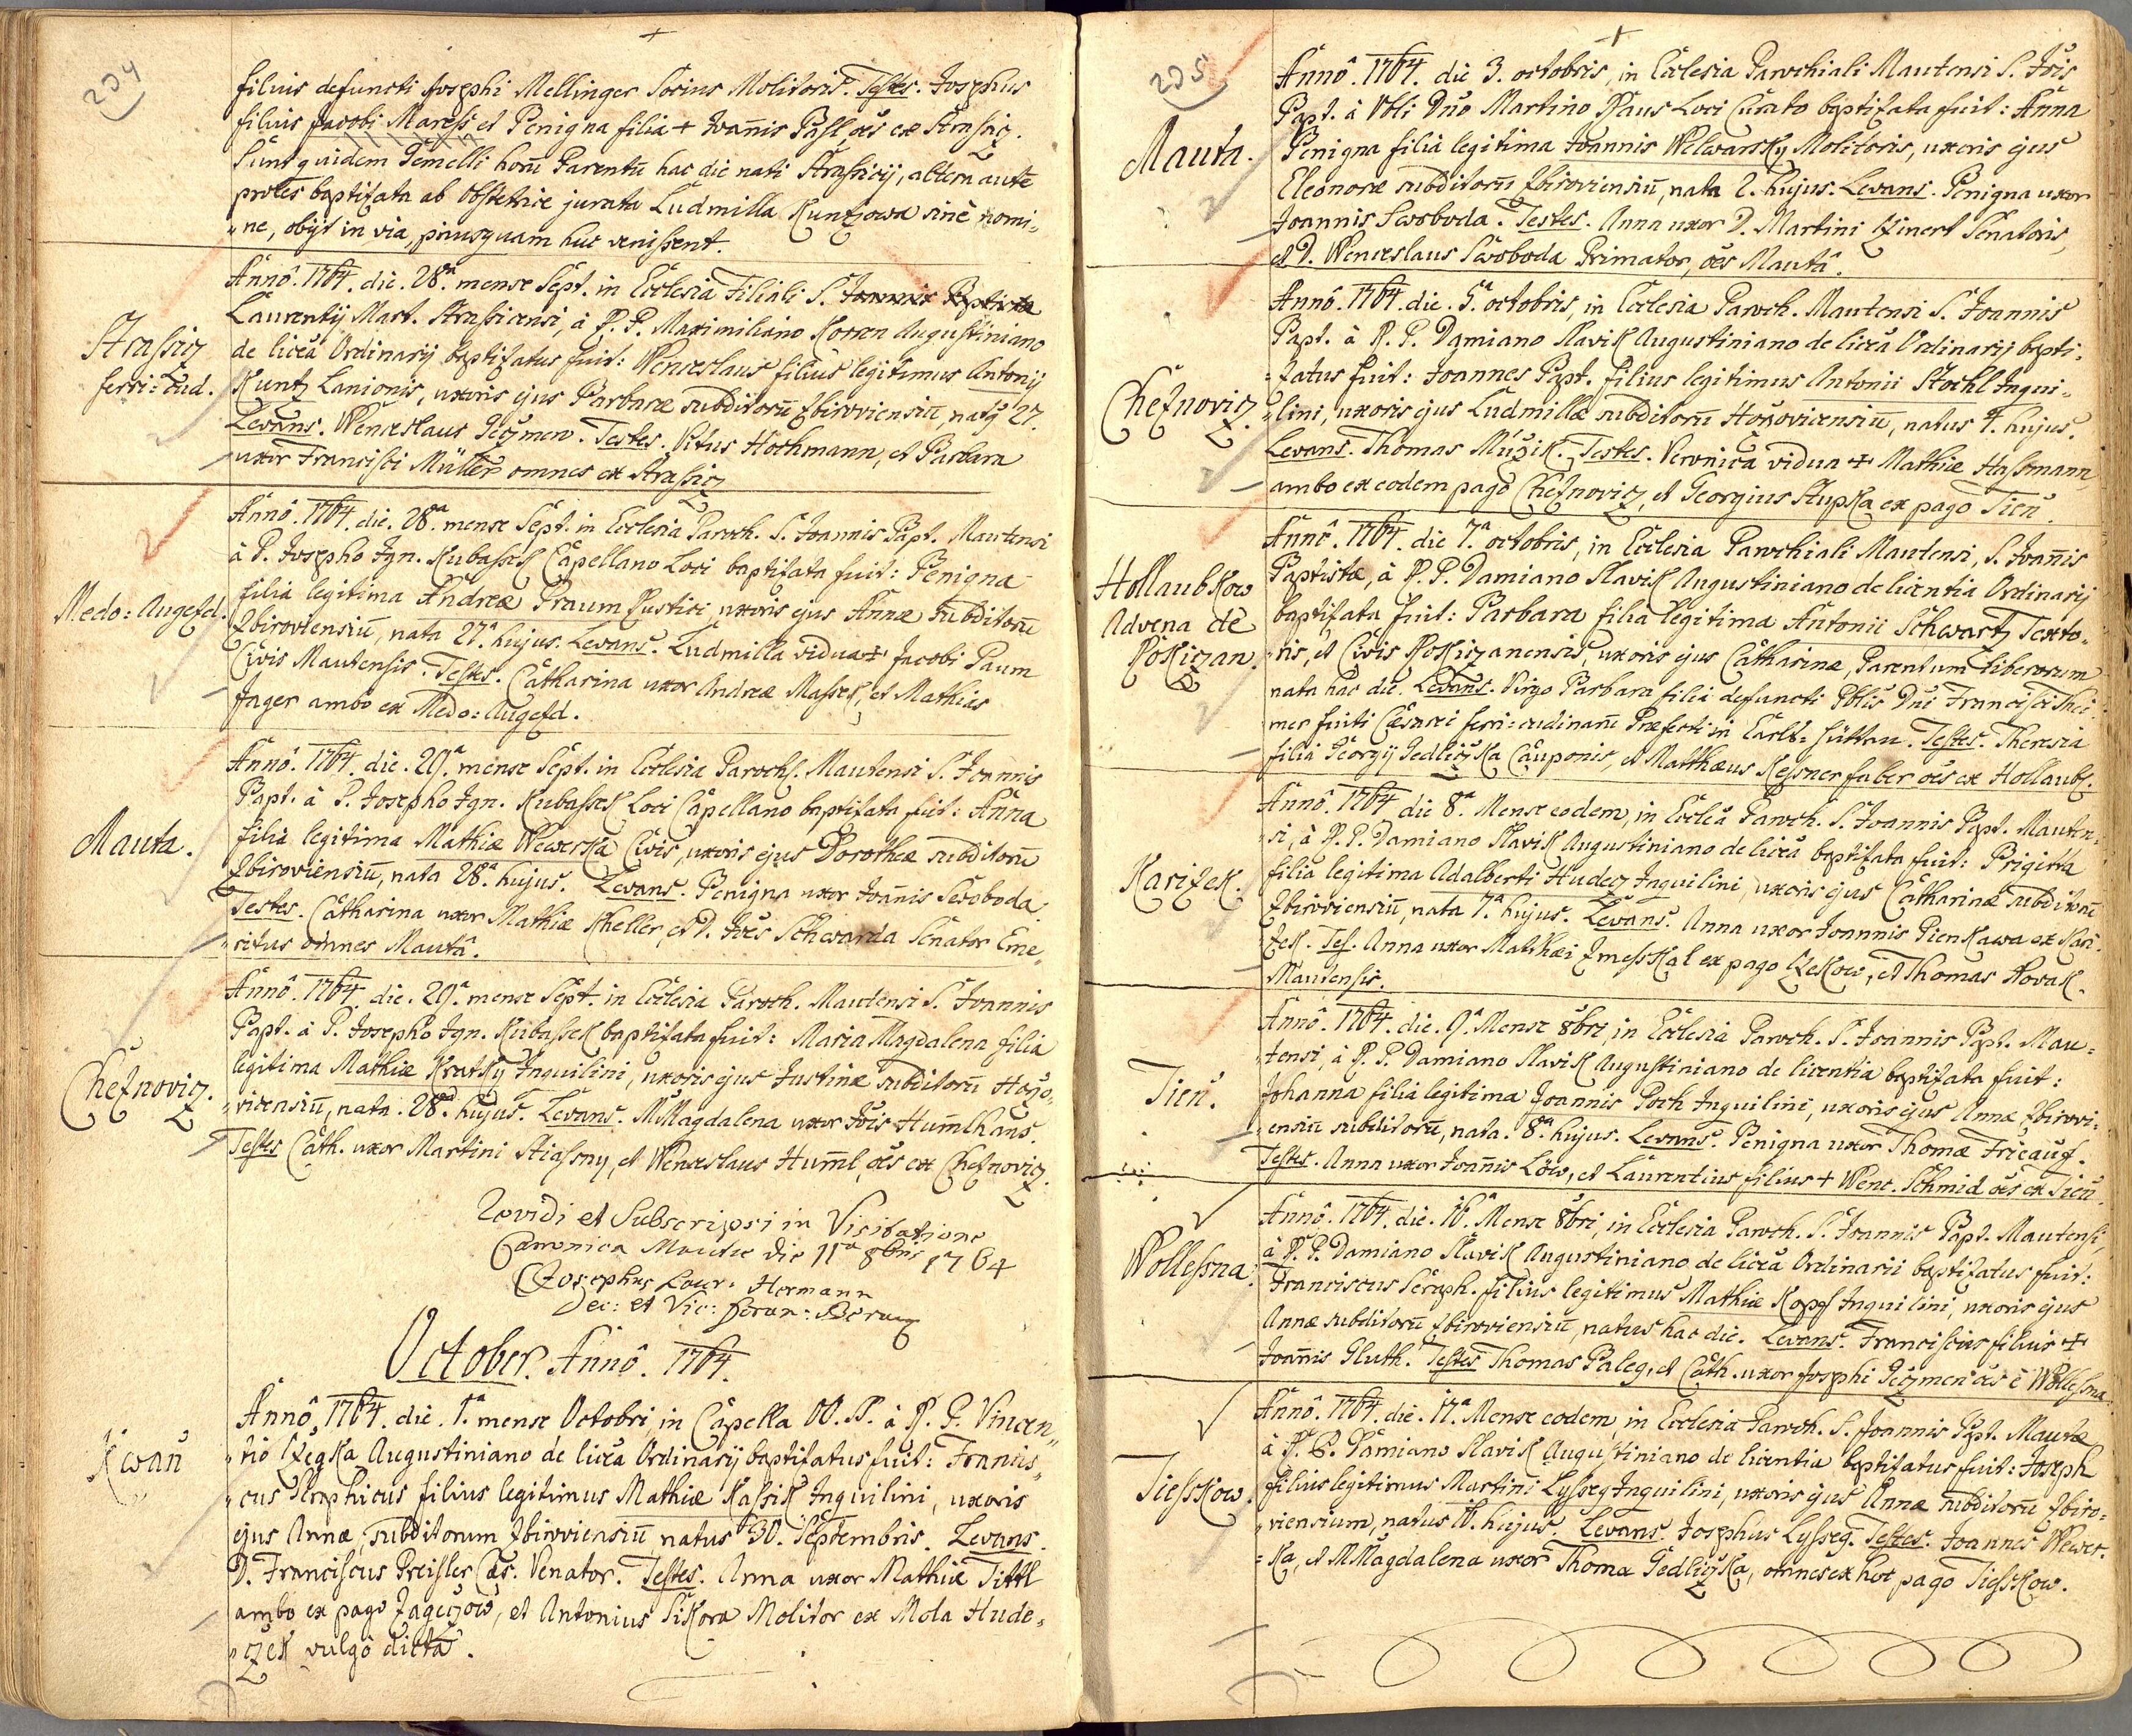 204
filius defuncti Josephi Mellinger Socius Molitoris. Testes. Josephus
filius Jacobi Maressi et Penigna filia + Joannis Pusl oēs ex Strasicz.
Sunt quidem Gemelli horū Parentū hac die nati Strasicij, altera autē
proles baptisata ab Obstetrice jurata Ludmilla Kuntzowa sine nomi„
„ne, obijt in via, priusquam huc venissent.
Strasicz
ferri=cud.
Annô. 1764. die. 28ª. mense Sept. in Ecclesia Filiali S. Joannis Baptistæ
Laurentij Mart. Strasicensi, à R. P. Maximiliano Korzen Augustiniano
de licēa Ordinarij baptisatus fuit: Wenceslaus filius legitimus Antonij
Kuntz Lanionis, uxoris ejus Barbaræ subditorū Zbiroviensiū, natus 27.
Levans. Wenceslaus Peczmen. Testes. Vitus Hochmann, et Barbara
uxor Francisci Müller omnes ex Strasicz
Medo: Augezd.
Annô. 1764. die. 28ª. mense Sept. in Ecclesia Paroch. S. Joannis Bapt. Mautensi
à P. Josepho Ign. Kubassek Capellano Loci baptisata fuit: Penigna
filia legitima Andreæ Praum Rustici, uxoris ejus Annæ subditorū
Zbiroviensiū, nata 27ª hujus. Levans. Ludmilla vidua + Jacobi Paum
Civis Mautensis. Testes. Catharina uxor Andreæ Massek, et Mathias
Jager ambo ex Medo: Augezd.
Mauta.
Annô. 1764. die. 29ª. mense Sept. in Ecclesia Paroch. Mautensi S. Joannis
Bapt. à P. Josepho Ign. Kubassek Loci Capellano baptisata fuit: Anna
filia legitima Mathiæ Wewerka Civis, uxoris ejus Dorotheæ subditorū
Zbiroviensiū, nata 28ª. hujus. Levans. Penigna uxor Joānis Swoboda.
Testes. Catharina uxor Mathiæ Kheller, et D. Joēs Schwarda Senator Eme„
„ritus omnes Mautâ.
Cheznovicz.
Annô. 1764. die. 29ª. mense Sept. in Ecclesia Paroch. Mautensi S. Joannis
Bapt. à P. Josepho Ign. Kubassek baptisata fuit: Maria Magdalena filia
legitima Mathiæ Kratky Inquilini, uxoris ejus Justinæ subditorū Horžo„
„vicensiū, nata. 28ª. hujus. Levans. M. Magdalena uxor Jōis Hum̄lhans.
Testes Cath. uxor Martini Stiasny, et Wenceslaus Hum̄l, oēs ex Cheznovicz.
Revidi et Subscripsi in Visitatione
Canonica Mautæ die 11ª 8bris 1764
Josephus Laur: Hermann
Dec: et Vic: Foran: Beraun
October. Annô. 1764.
Kwaň
Annô. 1764. die. 1ª. mense Octobri, in Capella OO. SS. à R. P. Vincen„
„tio Czegka Augustiniano de licēa Ordinarij baptisatus fuit: Francis„
„cus Seraphicus filius legitimus Mathiæ Kassik Inquilini, uxoris
ejus Annæ, subditorum Zbiroviensiū natus 30. Septembris. Levans.
D. Franciscus Preisler Cæs. Venator. Testes. Anna uxor Mathiæ Tittl
ambo ex pago Jageczow, et Antonius Sikora Molitor ex Mola Hude„
„czek vulgô dicta.
205
Mauta.
Annô. 1764. die 3. octobris, in Ecclesia Parochiali Mautensi S. Jōis
Bapt. à Vbli Dnō Martino Klaus Loci Curato baptisata fuit: Anna
Penigna filia legitima Joannis Welwarsky Molitoris, uxoris ejus
Eleonoræ subditorū Zbiroviensiū, nata 2. hujus. Levans. Penigna uxor
Joannis Swoboda. Testes. Anna uxor D. Martini Czinert Senatoris,
et D. Wenceslaus Swoboda Primator, oēs Mautâ.
Cheznovicz.
Annô. 1764. die. 5ª octobris, in Ecclesia Paroch. Mautensi S. Joannis
Bapt. à R. P. Damiano Slavik Augustiniano de licēa Ordinarij bapti„
„satus fuit: Joannes Bapt. filius legitimus Antonii Stochl Inqui„
„lini, uxoris ejus Ludmillæ subditorū Horžovicensiū, natus 4. hujus.
Levans. Thomas Mužik. Testes. Veronica vidua + Mathiæ Hassmann,
ambo ex eodem pago Cheznovicz, et Georgius Stupka ex pago Tieň.
Hollaubkow
Advena de
Rokiczan.
Annô. 1764. die 7ª. octobris, in Ecclesia Parochiali Mautensi, S. Joānis
Baptistæ, à R. P. Damiano Slavik Augustiniano de licentia Ordinarij
baptisata fuit: Barbara filia legitima Antonii Schwartz Texto„
„ris, et Civis Rokiczanensis, uxoris ejus Catharinæ, Parentum liberorum
nata hac die. Levans. Virgo Barbara filia defuncti Pblis Dni Francisci Thei„
mer fuiti Cæsarei ferri=cudinarū Præfecti in Carls=hütten. Testes. Theresia
filia Georgij Jedliczka Cauponis, et Matthæus Kessner faber oēs ex Hollaubk.
Karizek.
Annô. 1764 die 8ª. Mense eodem, in Ecclēa Paroch. S. Joannis Bapt. Mauten„
„si, à R. P. Damiano Slavik Augustiniano de licēa baptisata fuit: Brigitta
filia legitima Adalberti Hudecz Inquilini, uxoris ejus Catharinæ subditorū
Zbiroviensiū, nata 7ª. hujus. Levans. Anna uxor Joannis Pienkawa ex Kari„
zek. Tes. Anna uxor Matthæi Zmesskal ex pago Czekow, et Thomas Nowak.
Mautensis.
Tieň.
Annô. 1764. die. 9ª. Mense 8bri, in Ecclesia Paroch. S. Joannis Bapt. Mau„
„tensi, à R. P. Damiano Slavik Augustiniano de licentia baptisata fuit:
Johanna filia legitima Joannis Poch Inquilini, uxoris ejus Annæ Zbirovi„
„ensiū subditorū, nata. 8ª. hujus. Levans. Penigna uxor Thomæ Fricauf.
Testes. Anna uxor Joānis Löw, et Laurentius filius + Wenc. Schmid oēs ex Tieň.
Wollessna.
Annô. 1764. die. 16ª. Mense 8bri, in Ecclesia Paroch. S. Joannis Bapt. Mautensi,
à R. P. Damiano Slavik Augustiniano de licēa Ordinarii baptisatus fuit:
Franciscus Seraph. filius legitimus Mathiæ Kopf Inquilini, uxoris ejus
Annæ subditorū Zbiroviensiū, natus hac die. Levans. Franciscus filius +
Joānis Gluth. Testes Thomas Paleg, et Cath. uxor Josephi Peczmen oēs è Wollessna
Tiesskow.
Annô. 1764. die. 17ª. Mense eodem, in Ecclesia Paroch. S. Joannis Bapt. Mautæ
à R. P. Damiano Slavik Augustiniano de licentia baptisatus fuit: Joseph
filius legitimus Martini Lysseg Inquilini, uxoris ejus Annæ subditorū Zbiro„
„viensium, natus 16. hujus. Levans. Josephus Lysseg. Testes. Joannes Wewer„
„ka, et M. Magdalena uxor Thomæ Gedliczka, omnes ex hoc pago Tiesskow.